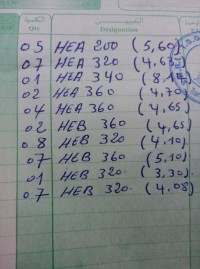 الكمية
Qté Désignation
05 HEA 200 (5,60)
07 HEA 320 (4,65)
01 HEA 340
02 HEA 360 (4,70)
04 HEA 360 (4,65)
02 HEB 360 (4,65)
0.8 HEB 320 (4,10)
07 HEB 360 (5,10)
01 HEB 320. (3,30)
0.7 HEB 320. (4,08)